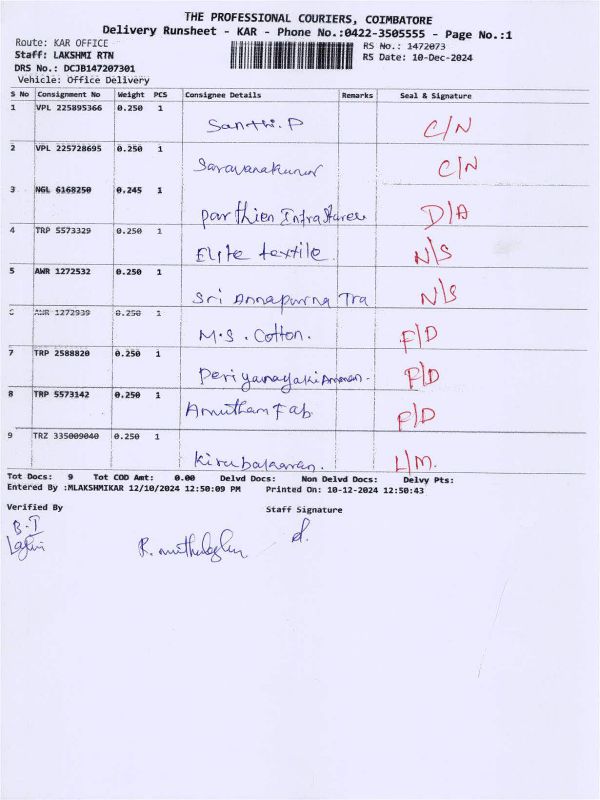 THE PROFESSIONAL COURIERS, COIMBATORE
Delivery Runsheet - KAR - Phone No.:0422-3505555 - Page No.:1
Route: KAR OFFICE RS No.: 1472073
Staff: LAKSHMI RTN RS Date: 10-Dec-2024
DRS No.: DCJB147207301
Vehicle: Office Delivery
S No Consignment No Weight PCS Consignee Details Remarks Seal & Signature
1 VPL 225895366 0.250 1
Santhi.P C/N
2 VPL 225728695 0.250 1
Saravanakumar C/N
3 NGL 6168250 0.245 1
Parthien Infra D/A
4 TRP 5573329 0.250 1
Elite textile. N/S
5 AWR 1272532 0.250 1
Sri Annapurna Tra N/S
AWR 1272939 0.250 1
M.S. Cotton. F/D
7 TRP 2588820 0.250 1
Periyanayaki Amman. F/D
8 TRP 5573142 0.250 1
Amutham Fab F/D
9 TRZ 335009040 0.250 1
Kirubakaran. L/M.
Tot Docs: 9 Tot COD Amt: 0.00 Delvd Docs: Non Delvd Docs: Delvy Pts:
Entered By :MLAKSHMIKAR 12/10/2024 12:50:09 PM Printed On: 10-12-2024 12:50:43
Verified By Staff Signature